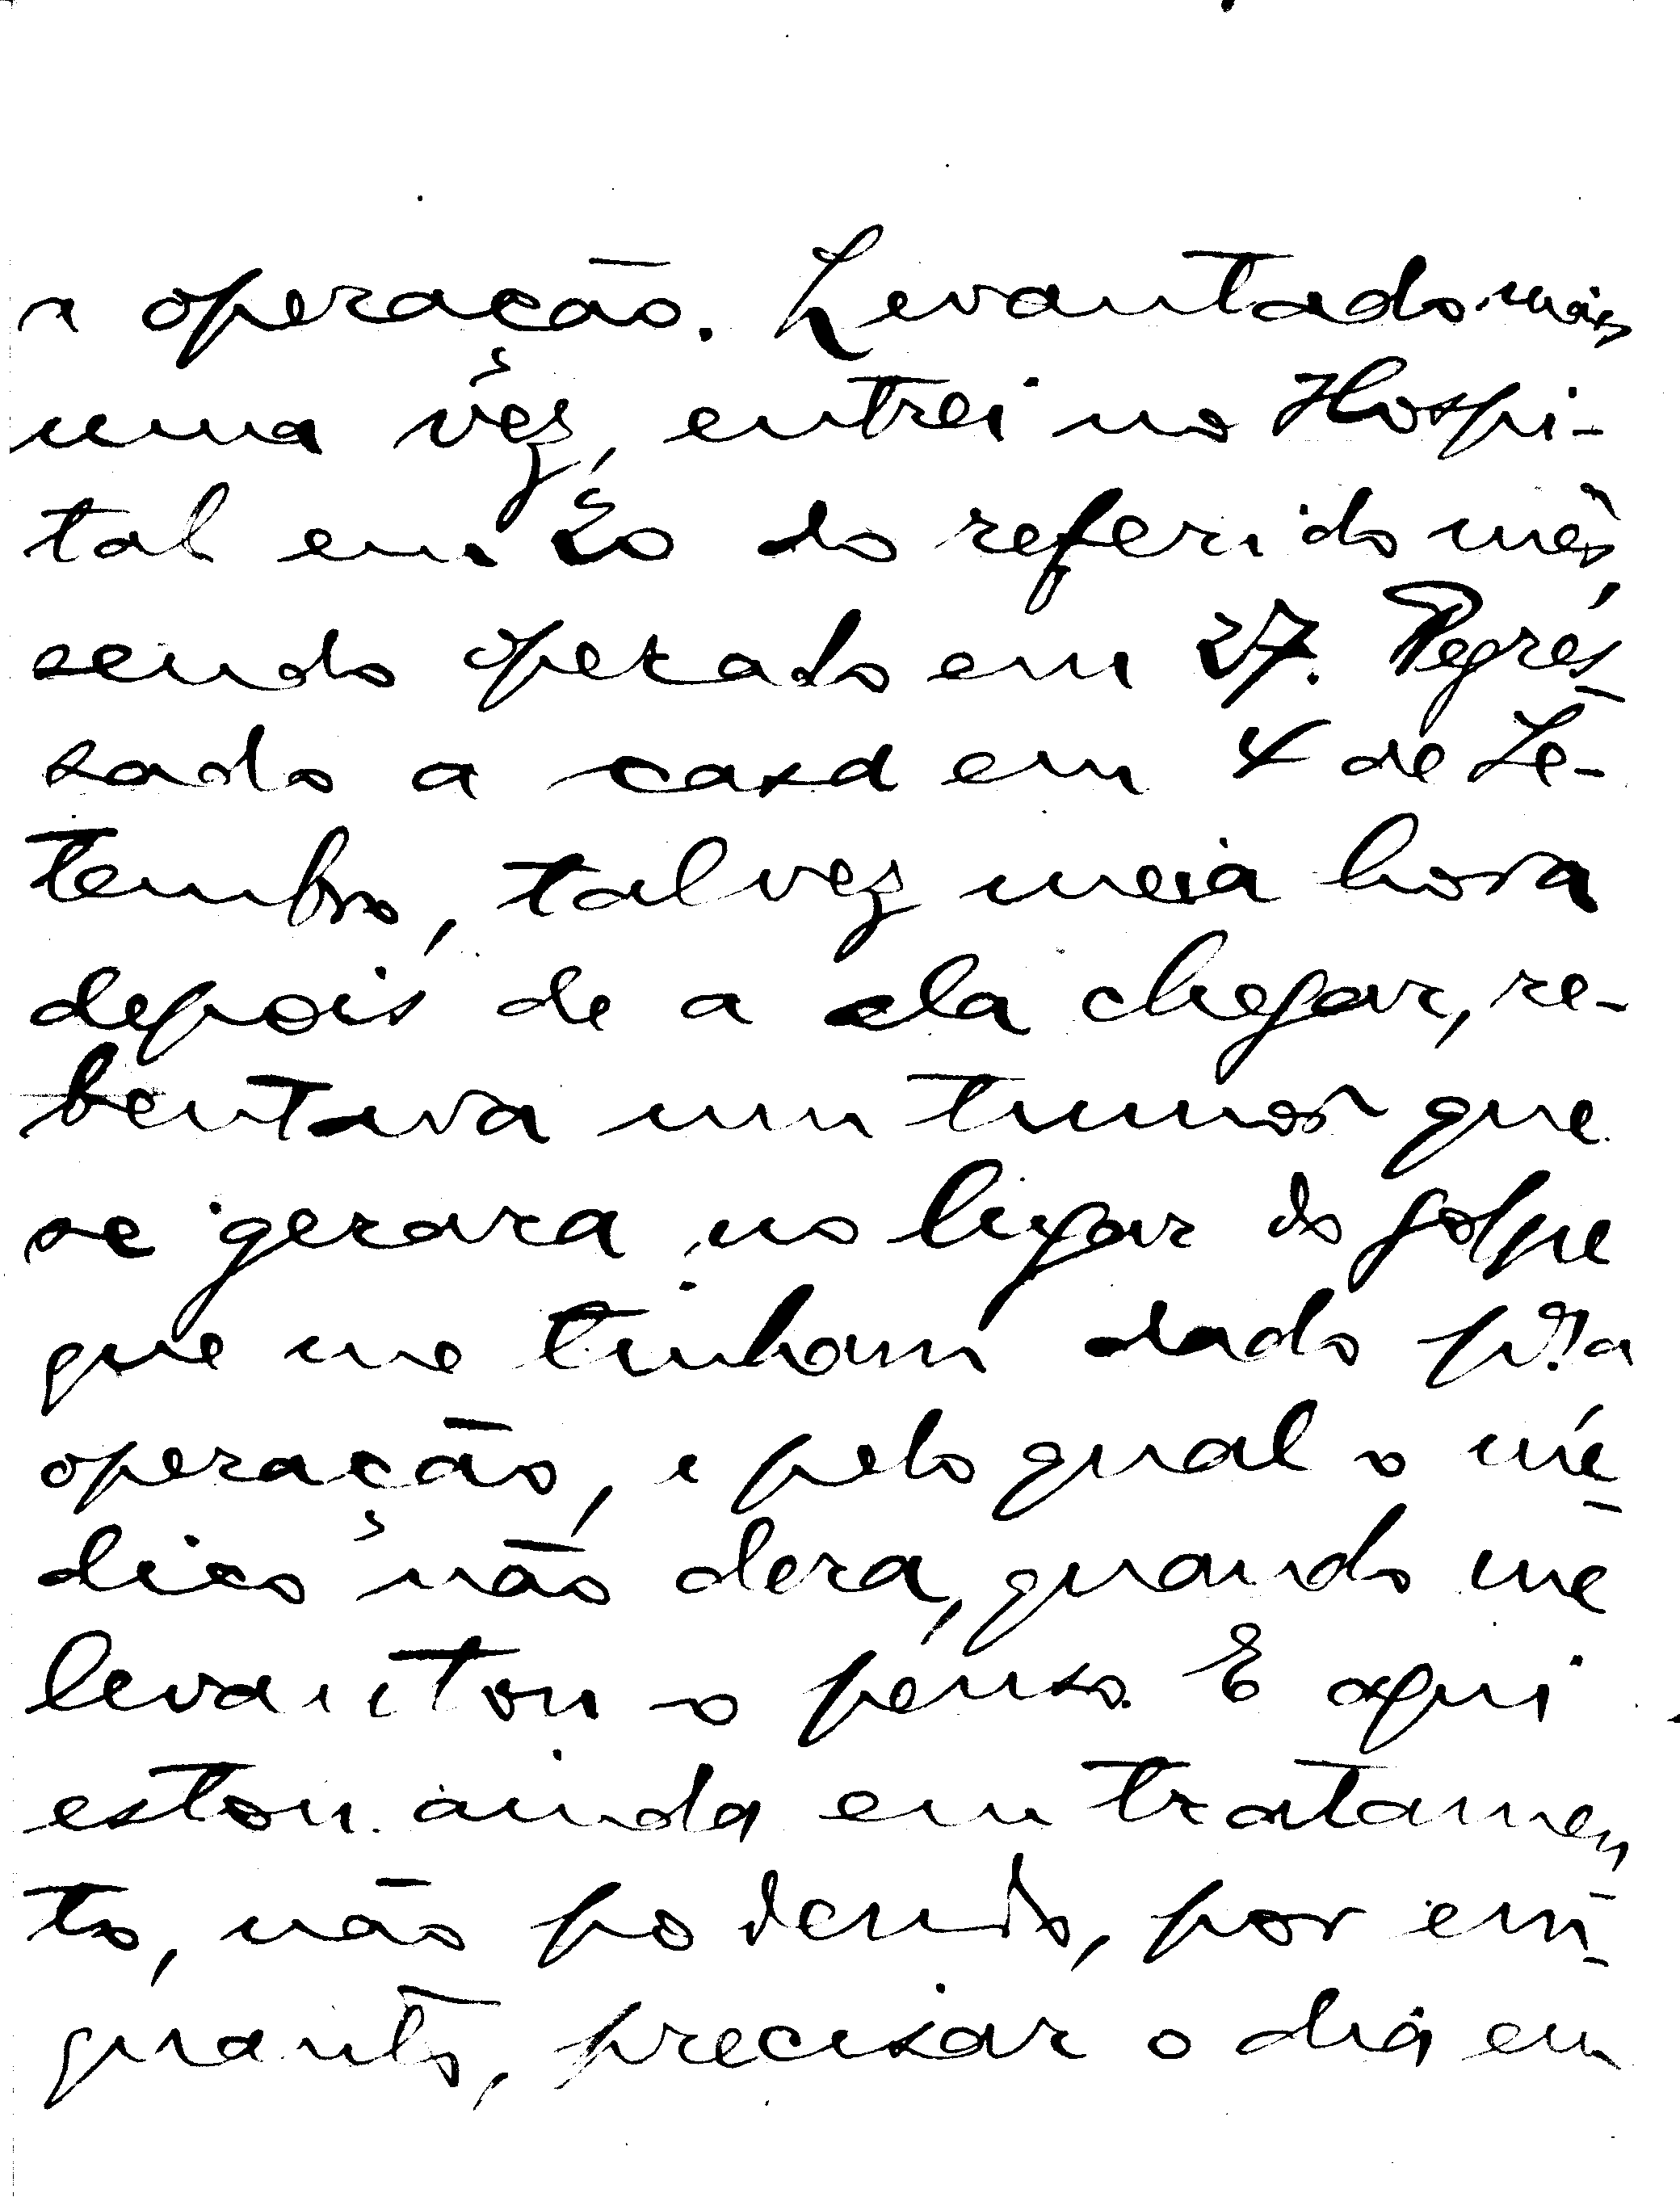 a operação. Levantado mais
uma vêz, entrei no Hospi-
tal em 20 do referido mês,
sendo operado em 27. Regres-
sado a casa em 4 de Se-
tembro, talvez meia hora
depois de a ela chegar, re-
bentava um tumor que
se gerara no lugar do golpe
que me tinham dado pª. a
operação, e pelo qual o mé-
dico não dera, quando me
levantou o penso. E aqui
estou ainda em tratamen
to, não podendo, por em-
quanto, precisar o dia em